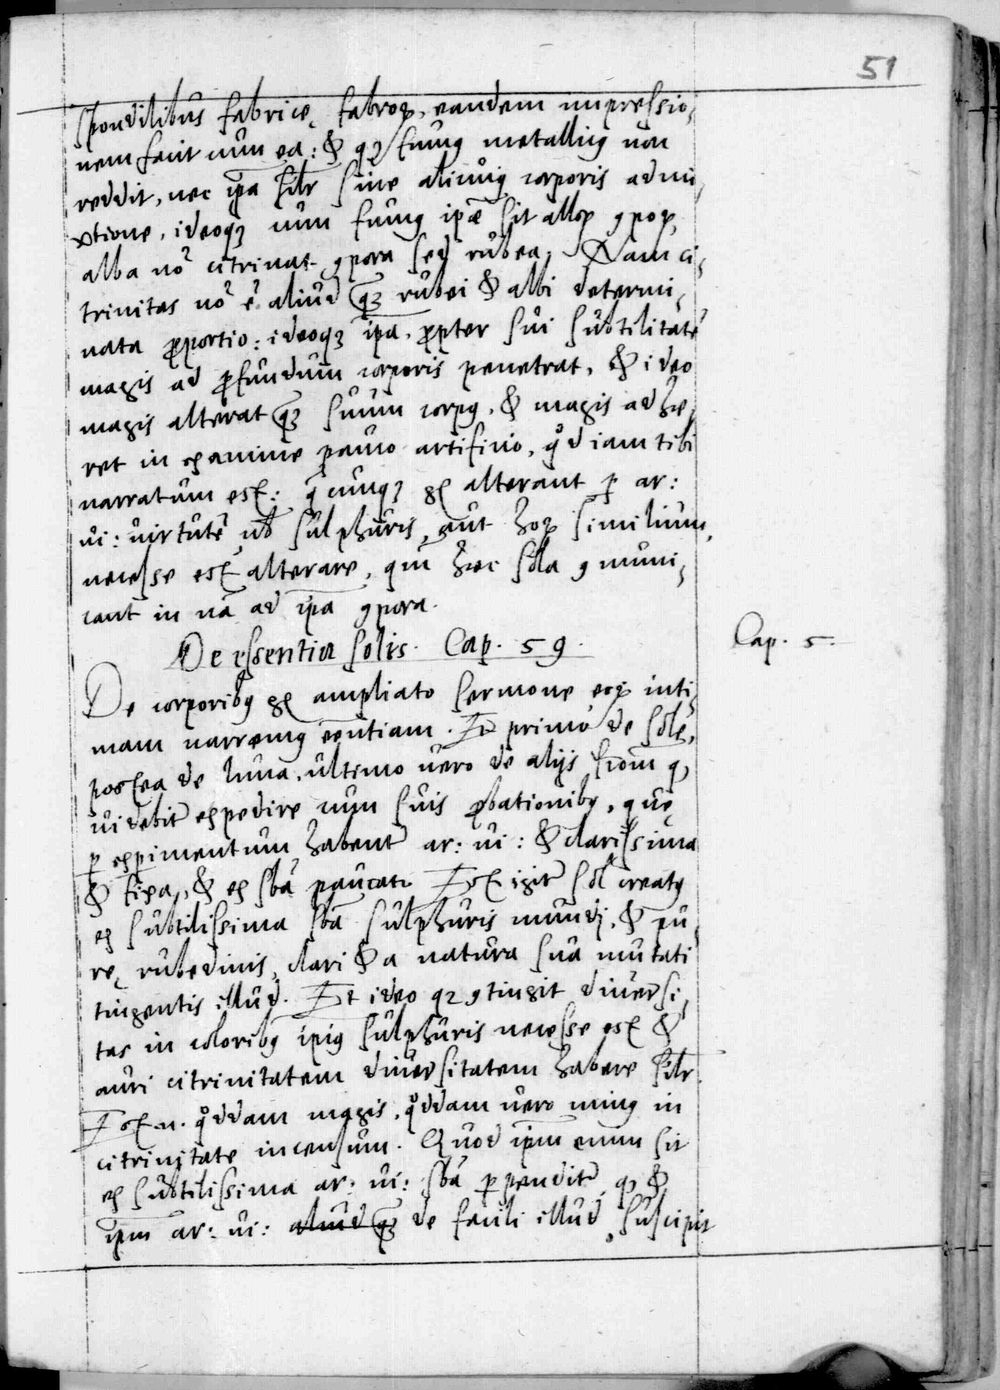 51
spondilibus fabricę fabroꝝ, eandem impressio,
nem facit cum ea: & qꝫ fumꝰ metallicꝰ non
reddit, nec ipa silr sine alicuiꝰ corporis admi,
xtione, ideoqꝫ cum fumꝰ ipē sit alloꝝ ꝯpoꝝ,
alba nō citrinat ꝯpora sed rubea, Nam ci,
trinitas nō ē aliud qꝫ rubei & albi determi,
nata ꝓportio: ideoqꝫ ipa, ꝓpter sui subtilitatē
magis ad ꝓfundum corporis penetrat, & ideo
magis alterat qꝫ suum corpꝰ, & magis adhæ,
ret in examine pauco artificio, qd iam tibi
narratum est: qcunqꝫ gͦ alterant ꝑ ar:
vi: virtutē vl sulphuris, aut hoꝝ similium,
necesse est alterare, qm hæc sola ꝯmuni,
cant in nā ad ipa ꝯpora.
De essentia solis. Cap. 59.
Cap. 5.
De corporibꝰ gͦ ampliato sermone eoꝝ inti,
mam narremꝰ eentiam. Et primo de sole,
postea de luna, ultimo vero de alijs scdm qꝫ
videbit expedire cum suis ꝓbationibꝰ, quę
ꝑ expimentum habent ar: vi: & clarissima
& fixa, & ex sba paucati Est igit sol creatꝰ
ex subtilissima sba sulphuris mundi, & pu,
rę rubedinis, clari & a natura sua mutati
tingentis illud. Et ideo qꝫ ꝯtingit diversi,
tas in coloribꝰ ipiꝰ sulphuris necesse est &
auri citrinitatem diversitatem habere silr.
Est .n. qddam magis, qddam vero minꝰ in
citrinitate incensum. Quod ipm enim sit
ex subtilissima ar: vi: sba ꝑpendit, qꝫ &
ipm ar: vi: aliud qꝫ de facili illud suscipit